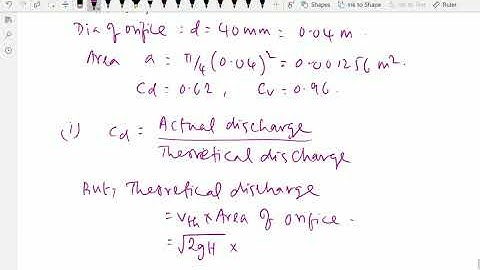 Shapes Ink to Shape Ruler
Dia of orifice : d = 40mm = 0.04 m.
Area a = π/4 (0.04)² = 0.001256 m².
Cd = 0.62 , Cv = 0.96.
(i) Cd = Actual discharge
Theoretical discharge
But, Theoretical discharge
= Vth × Area of orifice.
= √2gH ×